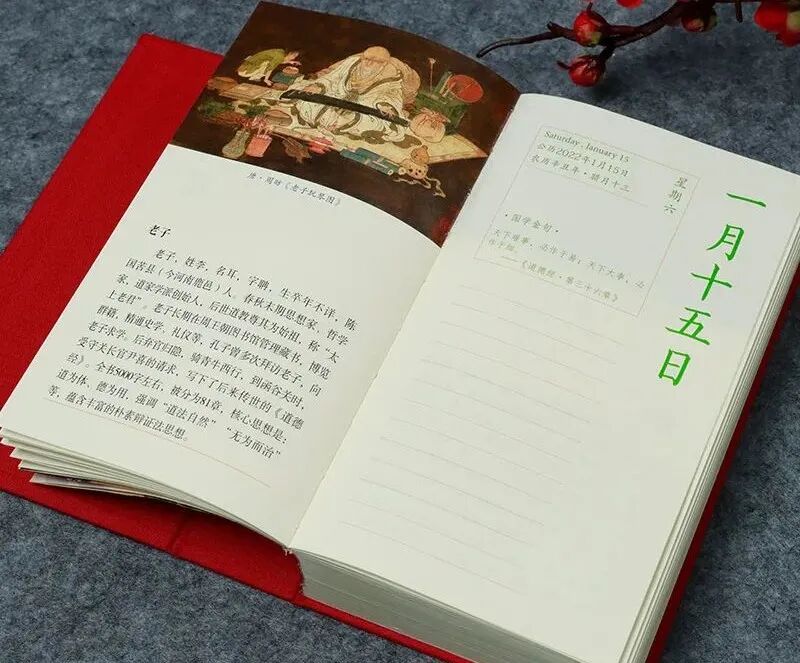 唐·周昉《老子玩琴图》
老子
老子，姓李，名耳，字聃，生卒年不详，陈
国苦县（今河南鹿邑）人。春秋末期思想家、哲学
家，道家学派创始人，后世道教尊其为始祖，称“太
上老君”。老子长期在周王朝图书馆管理藏书，博览
群籍，精通史学、礼仪等，孔子曾多次拜访老子，向
老子求学。后弃官归隐，骑青牛西行，到函谷关时，
受守关长官尹喜的请求，写下了后来传世的《道德
经》。全书5000字左右，被分为81章，核心思想是：
道为体、德为用，强调“道法自然”“无为而治”
等，蕴含丰富的朴素辩证法思想。
Saturday, January 15
公历2022年1月15日
农历辛丑年·腊月十三
星期六
·国学金句·
天下难事，必作于易；天下大事，必
作于细。
——《道德经·第六十三章》
一月十五日